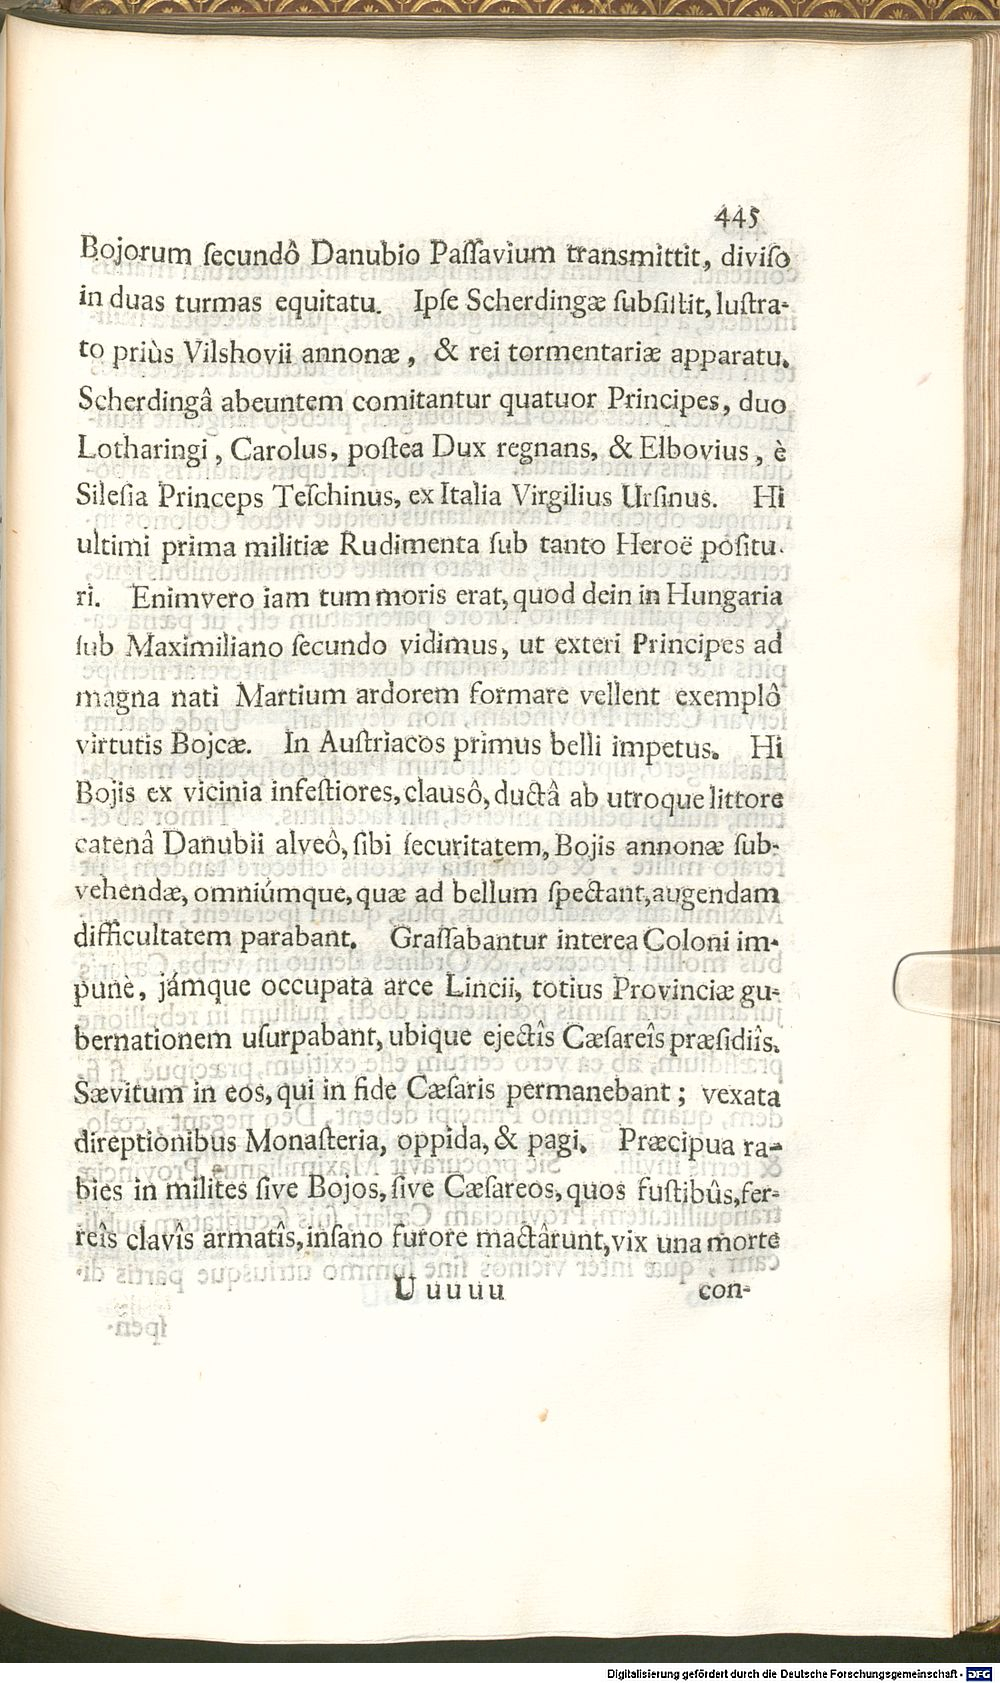 445
Bojorum ſecundô Danubio Paſſavium transmittit, diviſo
in duas turmas equitatu. Ipſe Scherdingæ ſubſiſtit, luſtra-
to priùs Vilshovii annonæ, & rei tormentariæ apparatu.
Scherdingâ abeuntem comitantur quatuor Principes, duo
Lotharingi, Carolus, poſtea Dux regnans, & Elbovius, è
Sileſia Princeps Teſchinus, ex Italia Virgilius Urſinus. Hi
ultimi prima militiæ Rudimenta ſub tanto Heroë poſitu-
ri. Enimvero iam tum moris erat, quod dein in Hungaria
ſub Maximiliano ſecundo vidimus, ut exteri Principes ad
magna nati Martium ardorem formare vellent exemplô
virtutis Bojcæ. In Auſtriacos primus belli impetus. Hi
Bojis ex vicinia infeſtiores, clausô, ductâ ab utroque littore
catenâ Danubii alveô, ſibi ſecuritatem, Bojis annonæ ſub-
vehendæ, omniúmque, quæ ad bellum ſpectant, augendam
difficultatem parabant. Graſſabantur interea Coloni im-
punè, jámque occupata arce Lincii, totius Provinciæ gu-
bernationem uſurpabant, ubique ejectîs Cæſareîs præſidiîs.
Sævitum in eos, qui in fide Cæſaris permanebant; vexata
direptionibus Monaſteria, oppida, & pagi. Præcipua ra-
bies in milites ſive Bojos, ſive Cæſareos, quos fuſtibûs, fer-
reîs clavîs armatîs, inſano furore mactârunt, vix una morte
U uuuu con-
Digitalisierung gefördert durch die Deutsche Forschungsgemeinschaft - DFG